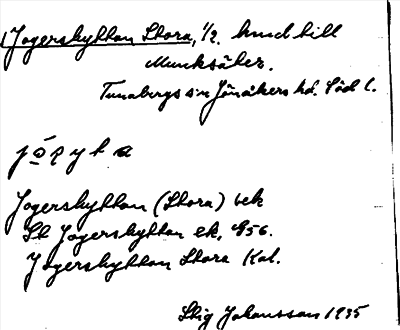 Jogershyttan Stora, 1/2. hmd till
Muncksäter.
Tunabergs sn Jönåkers hd. Söd l.
Jogershyttan (Stora) bek
St Jogershyttan ek, 456.
Jogershyttan Stora Kat.
Stig Johansson 1935